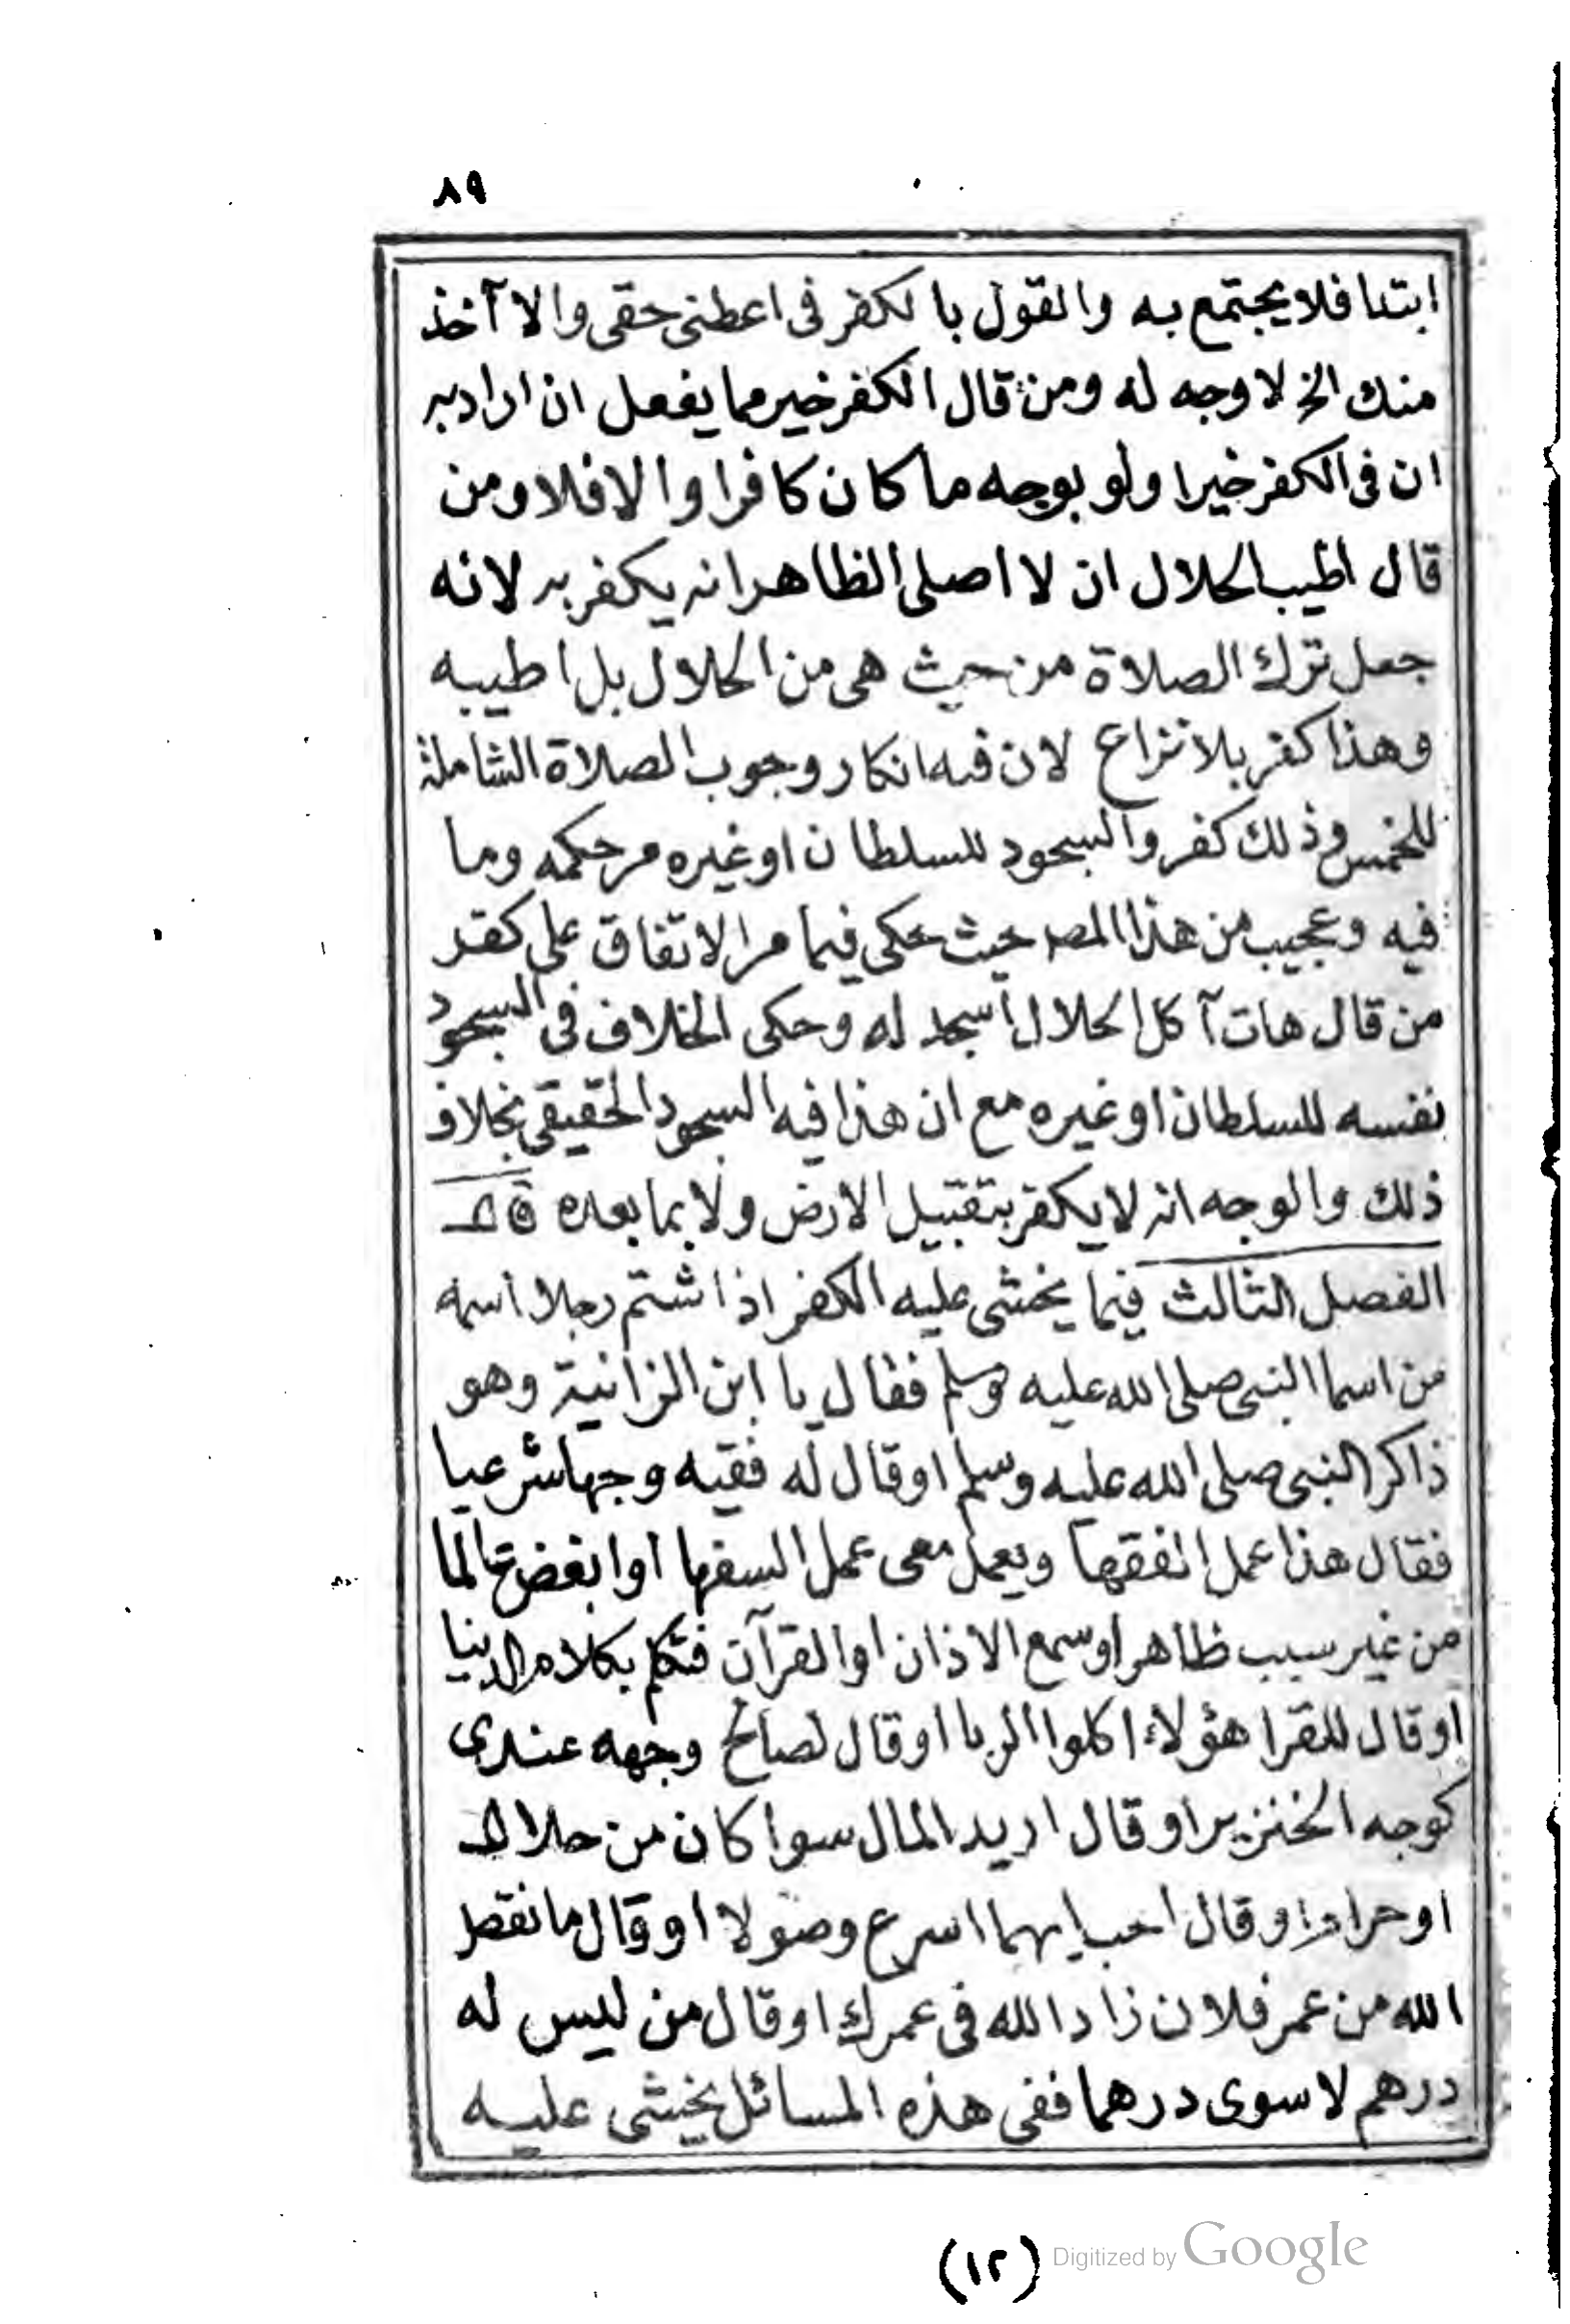 ٨٩
ابتدا فلا يجتمع به والقول بالكفر فى اعطنى حقى والا آخذ
منك الخ لا وجه له ومن قال الكفر خير مما يفعل ان اراد به
ان فى الكفر خيرا ولو بوجه ما كان كافرا والا فلا ومن
قال اطيب الحلال ان لا اصلى الظاهر انه يكفر به لانه
جعل ترك الصلاة من حيث هى من الحلال بل اطيبه
وهذا كفر بلا نزاع لان فيه انكار وجوب الصلاة الشاملة
للخمس وذلك كفر والسجود للسلطان او غيره مر حكمه وما
فيه وعجيب من هذا المصـ حيث حكى فيما مر الاتفاق على كفر
من قال هات آكل الحلال اسجد له وحكى الخلاف فى السجود
نفسه للسلطان او غيره مع ان هذا فيه السجود الحقيقى بخلاف
ذلك والوجه انه لا يكفر بتقبيل الارض ولا بما بعده قال
الفصل الثالث فيما يخشى عليه الكفر اذا شتم رجلا اسمه
من اسما النبى صلى الله عليه وسلم فقال يا ابن الزانية وهو
ذاكر النبى صلى الله عليه وسلم او قال له فقيه وجها شرعيا
فقال هذا عمل الفقها ويعمل معى عمل السفها او ابغض عالما
من غير سبب ظاهر او سمع الاذان او القرآن فتكلم بكلام الدنيا
او قال للقرا هؤلاء اكلوا الربا او قال لصالح وجهه عندى
كوجه الخنزير او قال اريد المال سوا كان من حلال
او حرام او قال احب ايهما اسرع وصولا او قال ما نقص
الله من عمر فلان زاد الله فى عمرك او قال من ليس له
درهم لا سوى درهما ففى هذه المسائل يخشى عليه
(١٢)
Digitized by Google